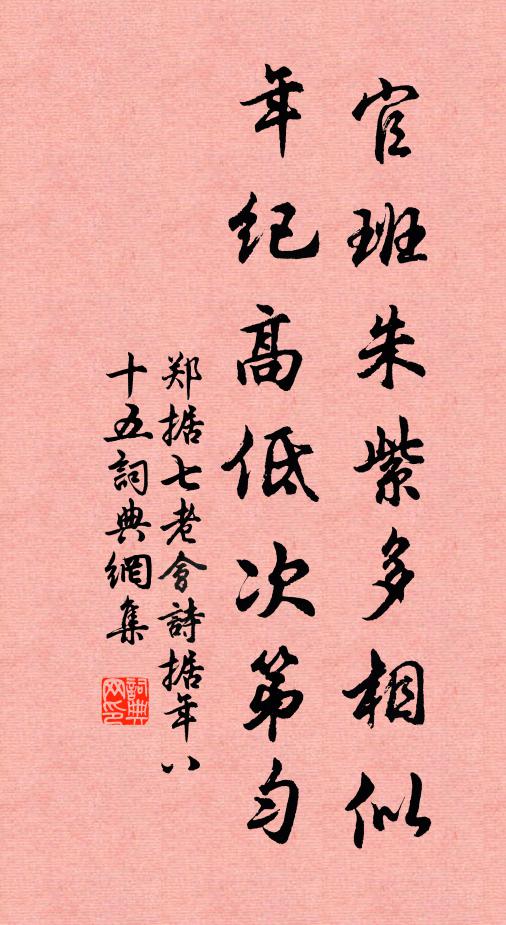 官班朱紫多相似
年纪高低次第匀
郑据七老會詩据年八
十五詞典網集
詞典
网印